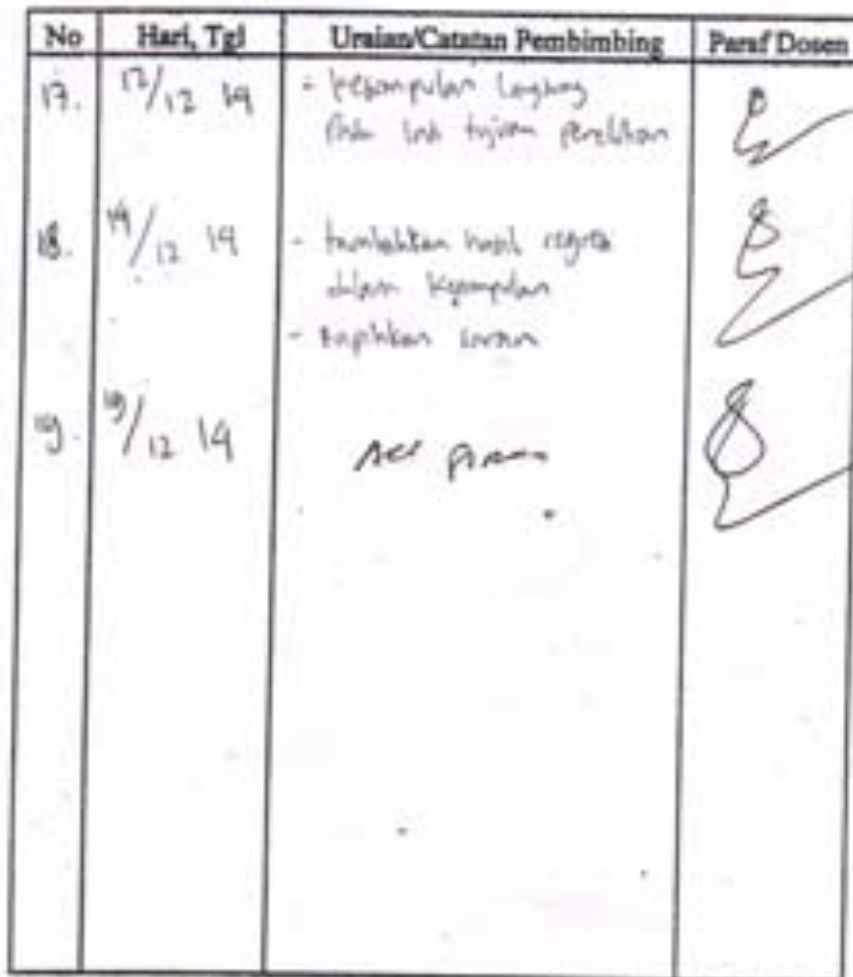 No Hari, Tgl Uraian/Catatan Pembimbing Paraf Dosen
17. 17/12 19 - kesimpulan langsung
pada inti tujuan penelitian
18. /12 19 - tambahkan hasil regresi
dalam kesimpulan
- rapihkan saran
19. 19/12 19 Acc